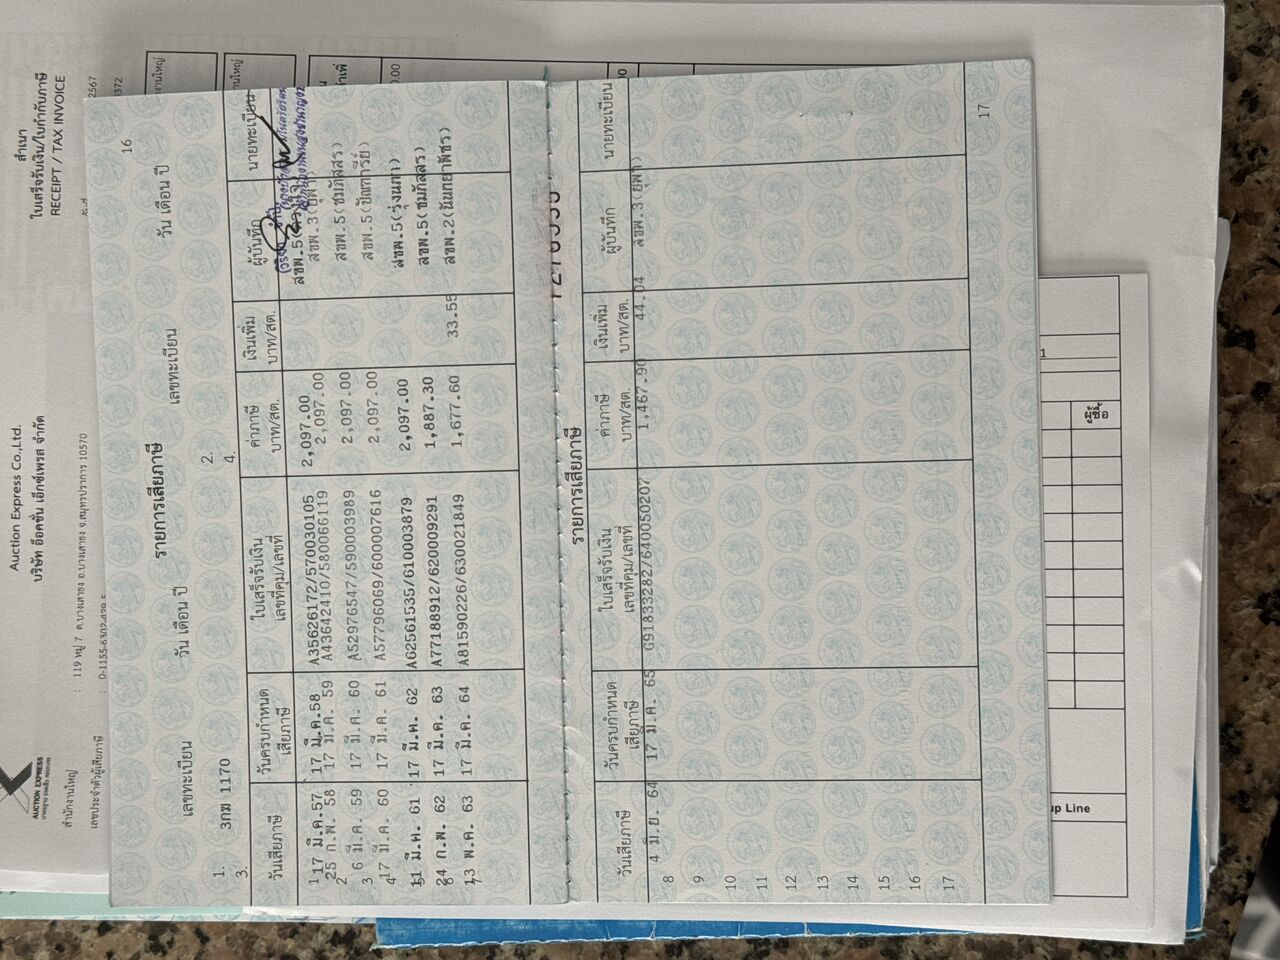 สำเนา
ใบเสร็จรับเงิน/ใบกำกับภาษี
RECEIPT / TAX INVOICE
Auction Express Co.,Ltd.
บริษัท อ๊อคชั่น เอ็กซ์เพรส จำกัด
: 119 หมู่ 7 ต.บางเสาธง อ.บางเสาธง จ.สมุทรปราการ 10570
AUCTION EXPRESS
สำนักงานใหญ่
เลขประจำตัวผู้เสียภาษี
2567
16
รายการเสียภาษี
เลขทะเบียน วัน เดือน ปี เลขทะเบียน วัน เดือน ปี
1. 3กฆ 1170 2.
3. 4.
วันเสียภาษี วันครบกำหนดเสียภาษี ใบเสร็จรับเงิน เลขที่คุม/เลขที่ ค่าภาษี บาท/สต. เงินเพิ่ม บาท/สต. ผู้บันทึก นายทะเบียน
1 17 มี.ค.57 17 มี.ค.58 A35626172/570030105 2,097.00 สขพ.5
25 ก.พ. 58 17 มี.ค. 59 A43642410/580066119 2,097.00 สขพ.3(ยุพา)
2 6 มี.ค. 59 17 มี.ค. 60 A52976547/590003989 2,097.00 สขพ.5(ชมภัสสร)
3 17 มี.ค. 60 17 มี.ค. 61 A57796069/600007616 2,097.00 สขพ.5
มี.ค. 61 17 มี.ค. 62 A62561535/610003879 2,097.00 สขพ.5(รุ่งนภา)
ก.พ. 62 17 มี.ค. 63 A77188912/620009291 1,887.30 สขพ.5(ชมภัสสร)
พ.ค. 63 17 มี.ค. 64 A81590226/630021849 1,677.60 33.55 สขพ.2(นันทยาพัชร)
รายการเสียภาษี
วันเสียภาษี วันครบกำหนดเสียภาษี ใบเสร็จรับเงิน เลขที่คุม/เลขที่ ค่าภาษี บาท/สต. เงินเพิ่ม บาท/สต. ผู้บันทึก นายทะเบียน
8 4 มิ.ย 64 17 มี.ค. 65 G91833282/640050207 1,467.90 44.04 สขพ.3(ยุพา)
9
10
11
12
13
14
15
16
17
17
up Line